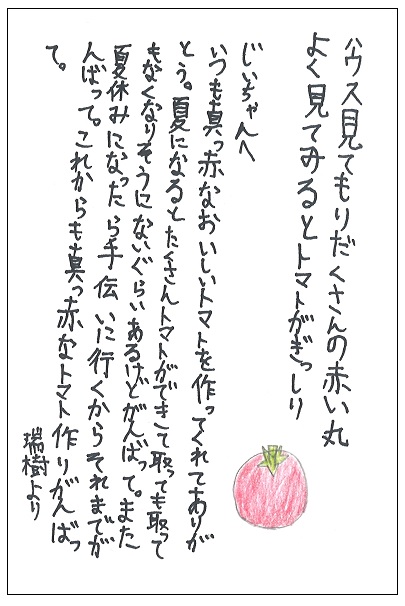 ハウス見てもりだくさんの赤い丸
よく見てみるとトマトがぎっしり
じいちゃんへ
いつも真っ赤なおいしいトマトを作ってくれてありが
とう。夏になるとたくさんトマトができて取っても取って
もなくなりそうにないぐらいあるけどがんばって。また
夏休みになったら手伝いに行くからそれまでが
んばって。これからも真っ赤なトマト作りがんばっ
て。
瑞樹より